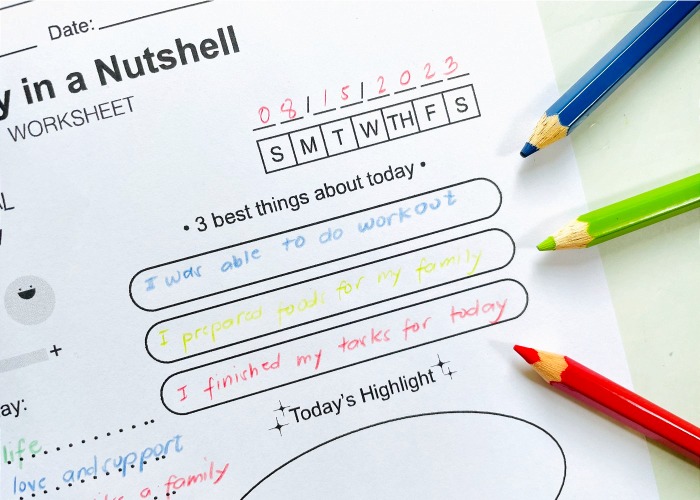 Date:
y in a Nutshell
WORKSHEET
08/15/2023
S M T W TH F S
• 3 best things about today •
I was able to do workout
I prepared foods for my family
I finished my tasks for today
+
ay:
Today's Highlight
life
love and support
a family